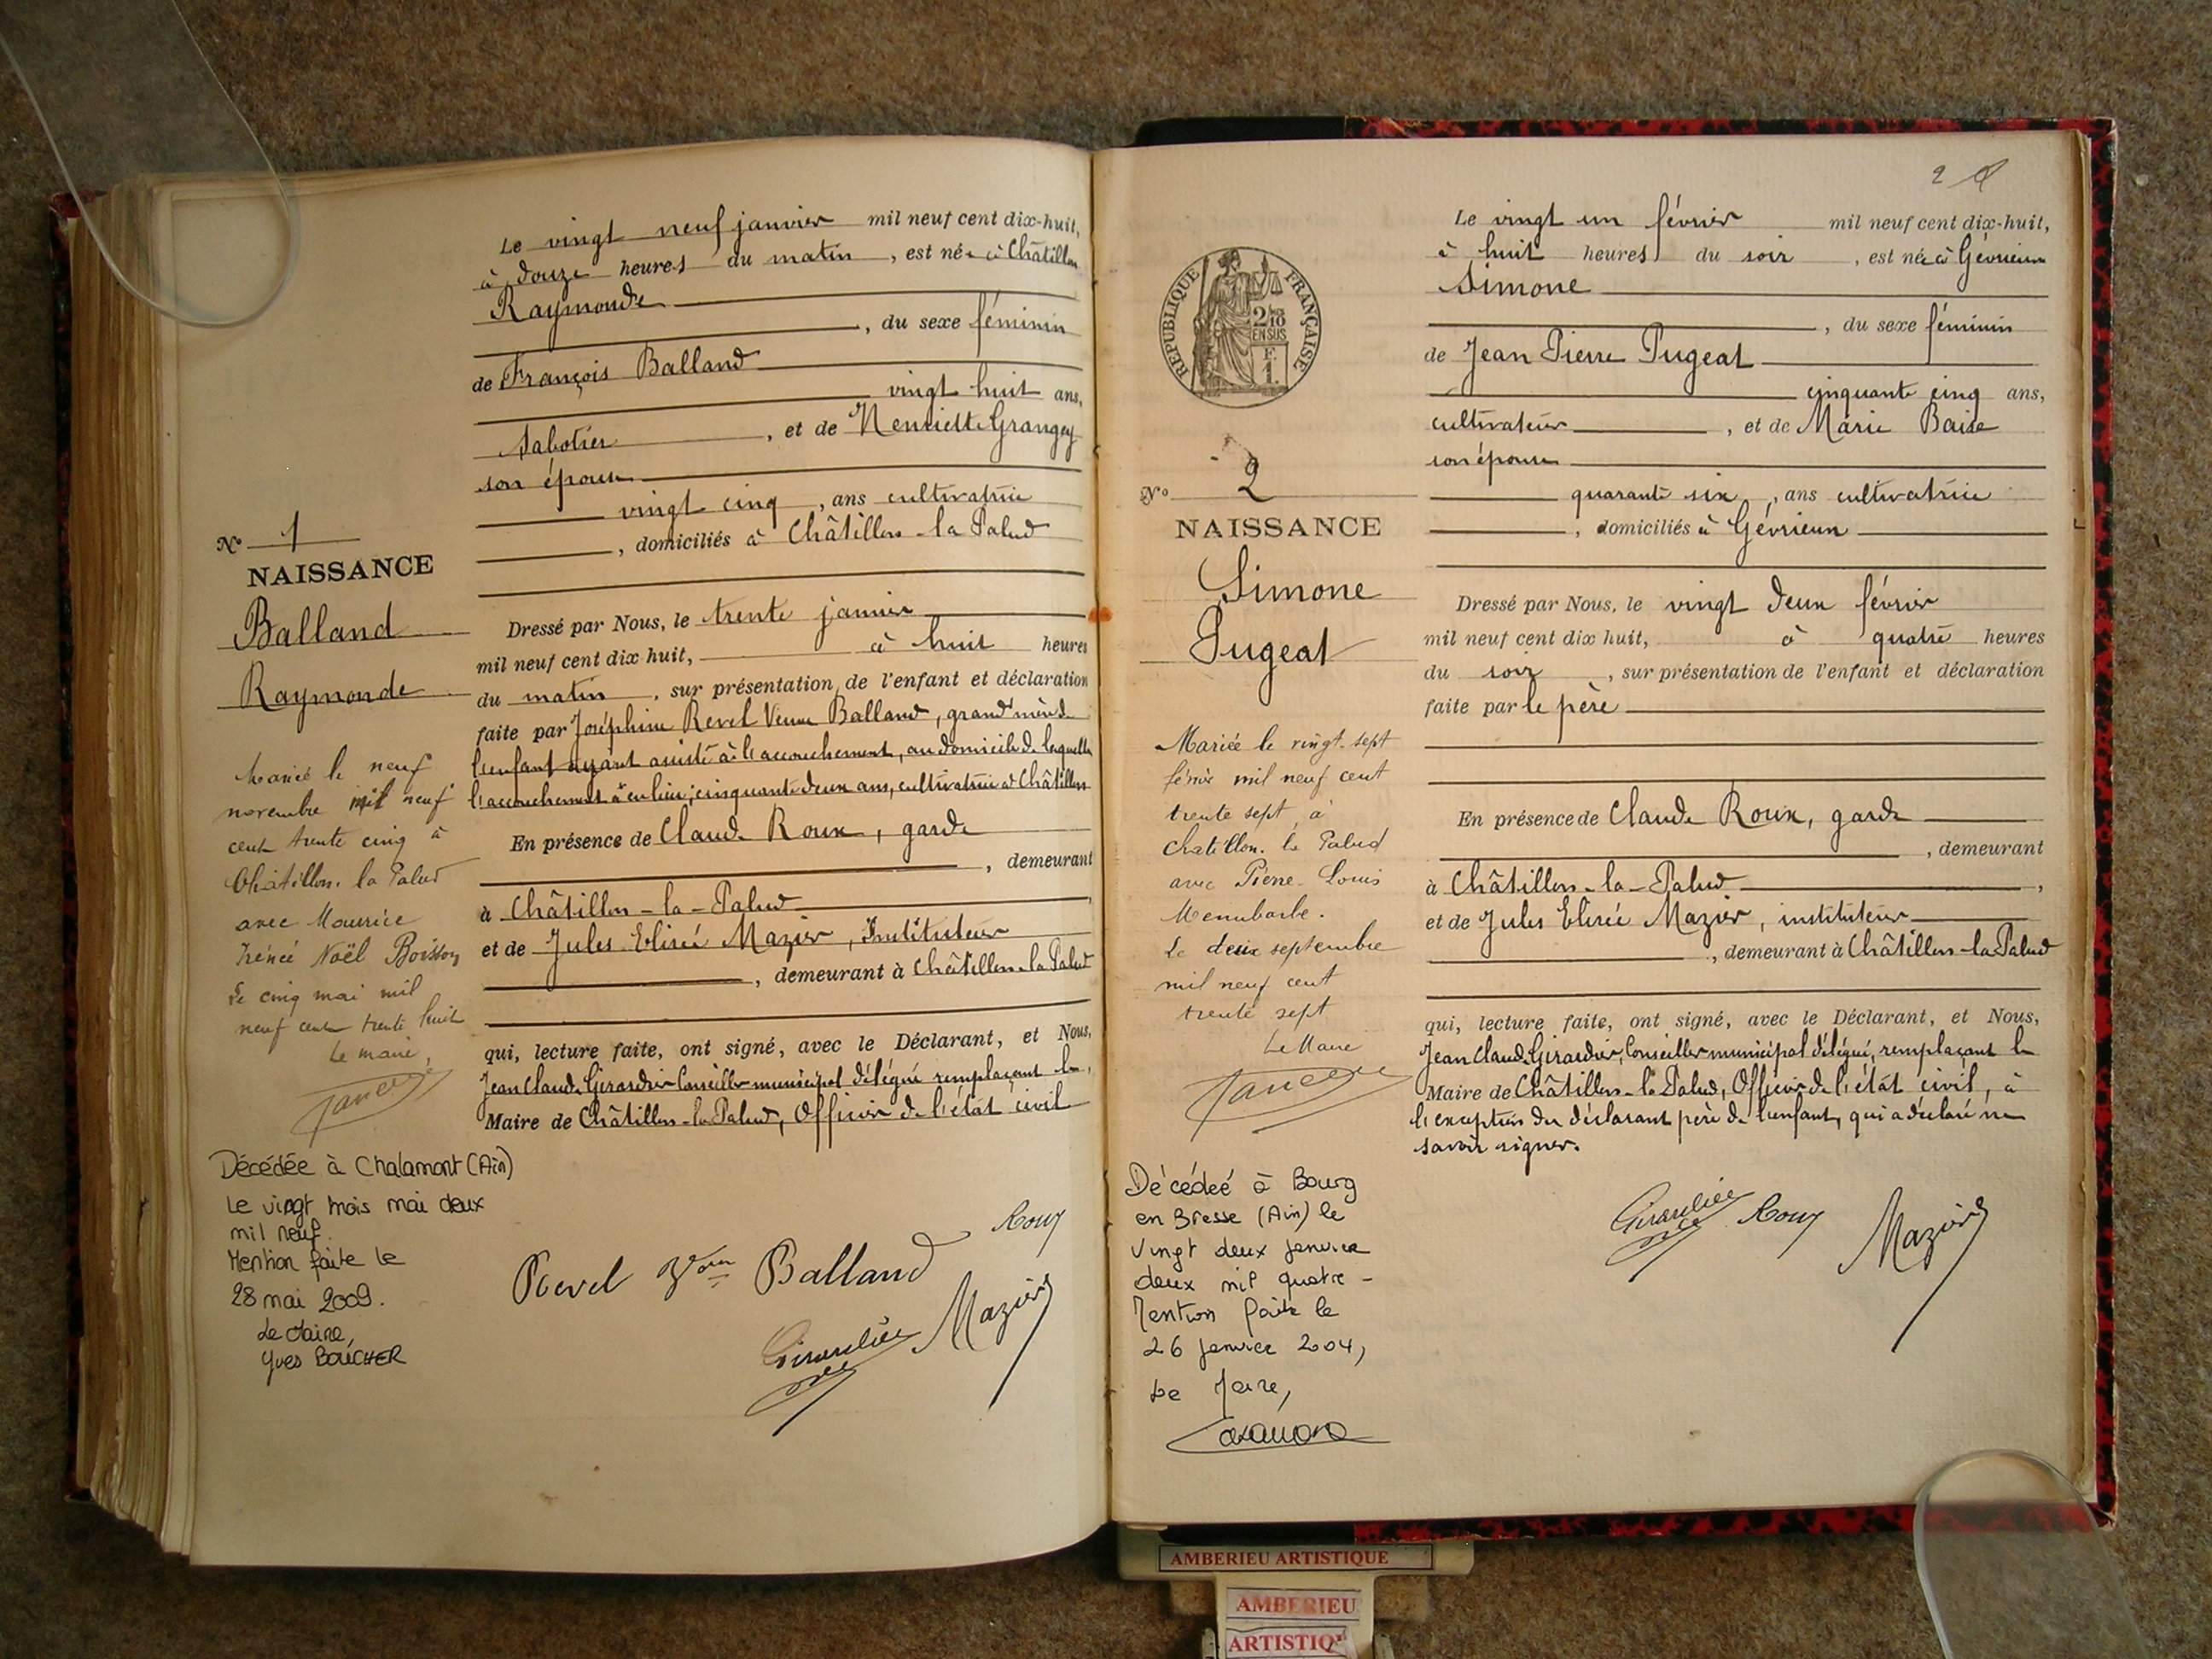 Le vingt neuf janvier mil neuf cent dix-huit,
à douze heures du matin, est née à Châtillon
Raymonde
, du sexe féminin
de François Balland
vingt huit ans,
sabotier, et de Henriette Grangey
son épouse
vingt cinq, ans cultivatrice
, domiciliés à Châtillon-la-Palud
Dressé par Nous, le trente janvier
mil neuf cent dix huit, à huit heures
du matin, sur présentation de l'enfant et déclaration
faite par Joséphine Revel Veuve Balland, grand'mère de
l'enfant ayant assisté à l'accouchement, au domicile de laquelle
l'accouchement a eu lieu, cinquante deux ans, cultivatrice à Châtillon
En présence de Claude Roux, garde
, demeurant
à Châtillon-la-Palud
et de Jules Elisée Mazier, Instituteur
, demeurant à Châtillon-la-Palud
qui, lecture faite, ont signé, avec le Déclarant, et Nous,
Jean Claude Girardier Conseiller municipal délégué remplaçant le
Maire de Châtillon-la-Palud, Officier de l'état civil
Revel Vve Balland
Roux
Girardier
Mazier
N° 1
NAISSANCE
Balland
Raymonde
Mariée le neuf
novembre mil neuf
cent trente cinq à
Châtillon. la Palud
avec Maurice
Irénée Noël Boisson
Le cinq mai mil
neuf cent trente huit
Le maire,
Décédée à Chalamont (Ain)
Le vingt trois mai deux
mil neuf.
Mention faite le
28 mai 2009.
Le Maire,
Yves BOUCHER
2
REPUBLIQUE FRANÇAISE
2/10
EN SUS
F.
1.
N° 2
NAISSANCE
Simone
Pugeat
Mariée le vingt. sept
février mil neuf cent
trente sept, à
Chatillon. la Palud
avec Pierre-Louis
Le deux septembre
mil neuf cent
trente sept
Le Maire
Décédeé à Bourg
en Bresse (Ain) le
vingt deux janvier
deux mil quatre -
Mention faite le
26 janvier 2004,
Le Maire,
Le vingt un février mil neuf cent dix-huit,
à huit heures du soir, est née à Gévrieux
Simone
, du sexe féminin
de Jean Pierre Pugeat
cinquante cinq ans,
cultivateur, et de Marie Baise
son épouse
quarante six, ans cultivatrice
, domiciliés à Gévrieux
Dressé par Nous, le vingt deux février
mil neuf cent dix huit, à quatre heures
du soir, sur présentation de l'enfant et déclaration
faite par le père
En présence de Claude Roux, garde
, demeurant
à Châtillon-la-Palud,
et de Jules Elisée Mazier, instituteur
, demeurant à Châtillon-la-Palud
qui, lecture faite, ont signé, avec le Déclarant, et Nous,
Jean Claude Girardier, Conseiller municipal délégué, remplaçant le
Maire de Châtillon-la-Palud, Officier de l'état civil, à
l'exception du déclarant père de l'enfant, qui a déclaré ne
savoir signer.
Girardier Roux Mazier
AMBERIEU ARTISTIQUE
AMBERIEU
ARTISTIQ